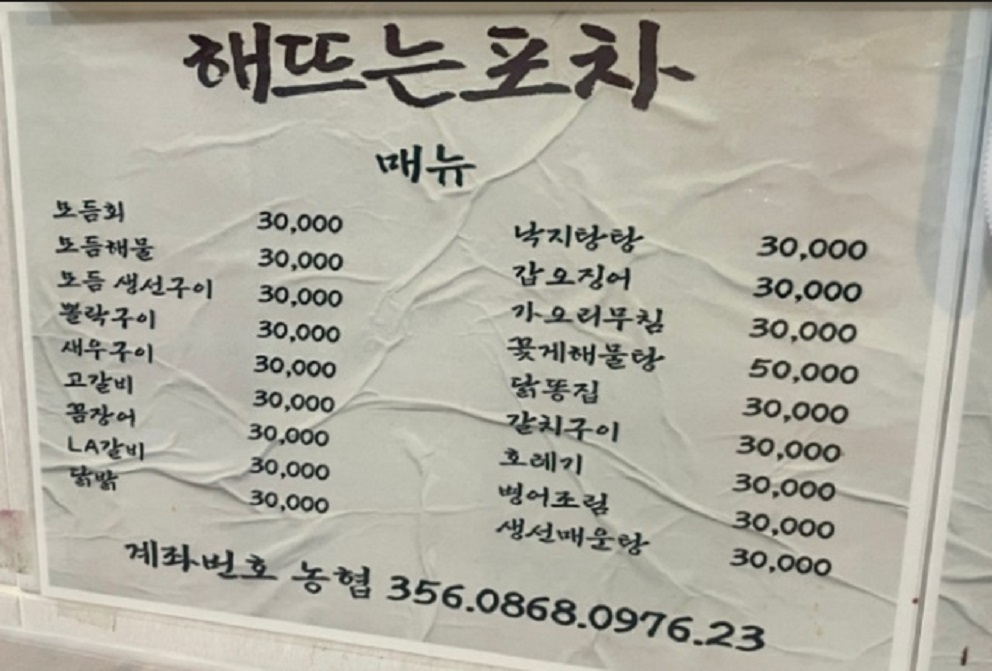 해뜨는포차
매뉴
모듬회 30,000
모듬해물 30,000
모듬 생선구이 30,000
뽈락구이 30,000
새우구이 30,000
고갈비 30,000
꼼장어 30,000
LA갈비 30,000
닭발 30,000
낙지탕탕 30,000
갑오징어 30,000
가오리무침 30,000
꽃게해물탕 50,000
닭똥집 30,000
갈치구이 30,000
호레기 30,000
병어조림 30,000
생선매운탕 30,000
계좌번호 농협 356.0868.0976.23